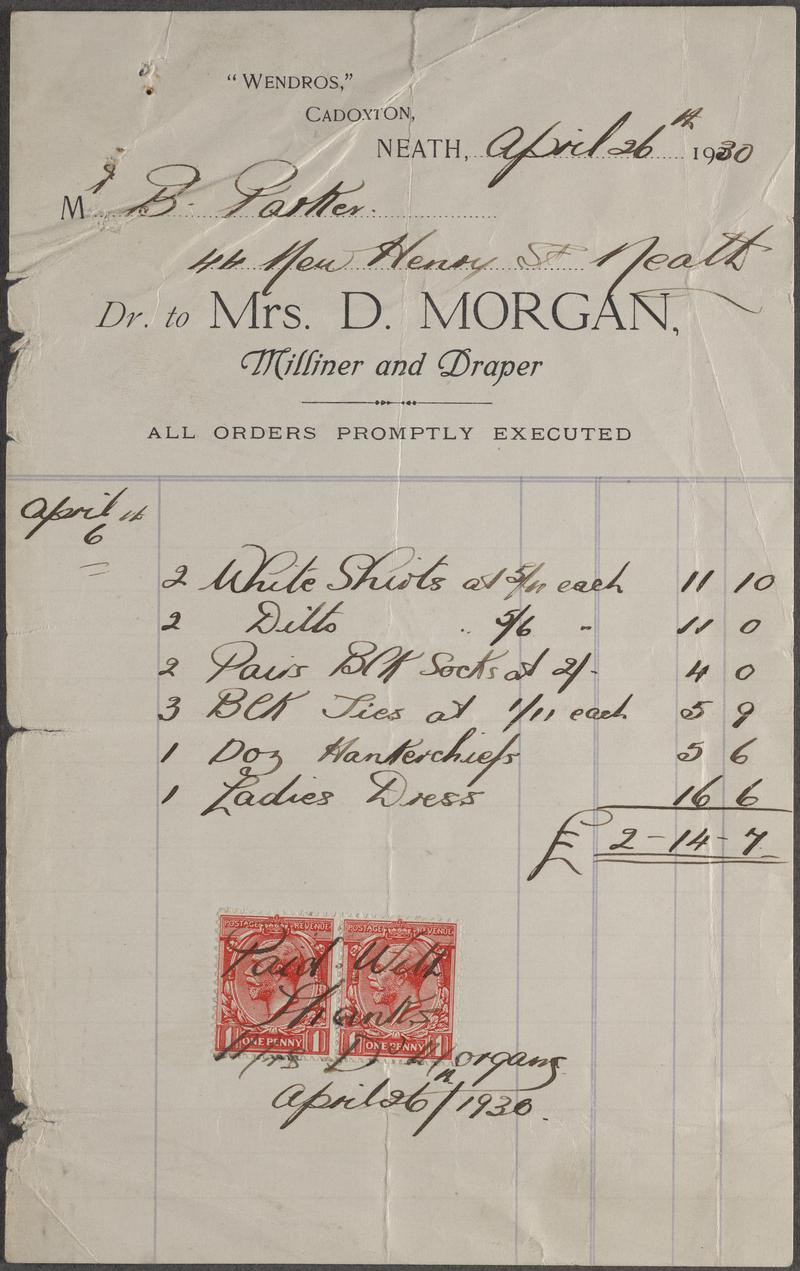 "WENDROS,"
CADOXTON,
NEATH, April 26th 1930
Mr B. Parker.
44 New Henry St Neath
Dr. to Mrs. D. MORGAN,
Milliner and Draper
ALL ORDERS PROMPTLY EXECUTED
April 6th
2 White Shirts at 5/11 each 11 10
2 Ditto .. 5/6 " 11 0
2 Pairs Blk Socks at 2/- 4 0
3 Blk Ties at 1/11 each 5 9
1 Doz Hankerchiefs 5 6
1 Ladies Dress 16 6
£ 2-14-7
POSTAGE REVENUE POSTAGE REVENUE
Paid With
Thanks
1 ONE PENNY 1 1 ONE PENNY 1
Mrs D Morgans
April 26th/1930.